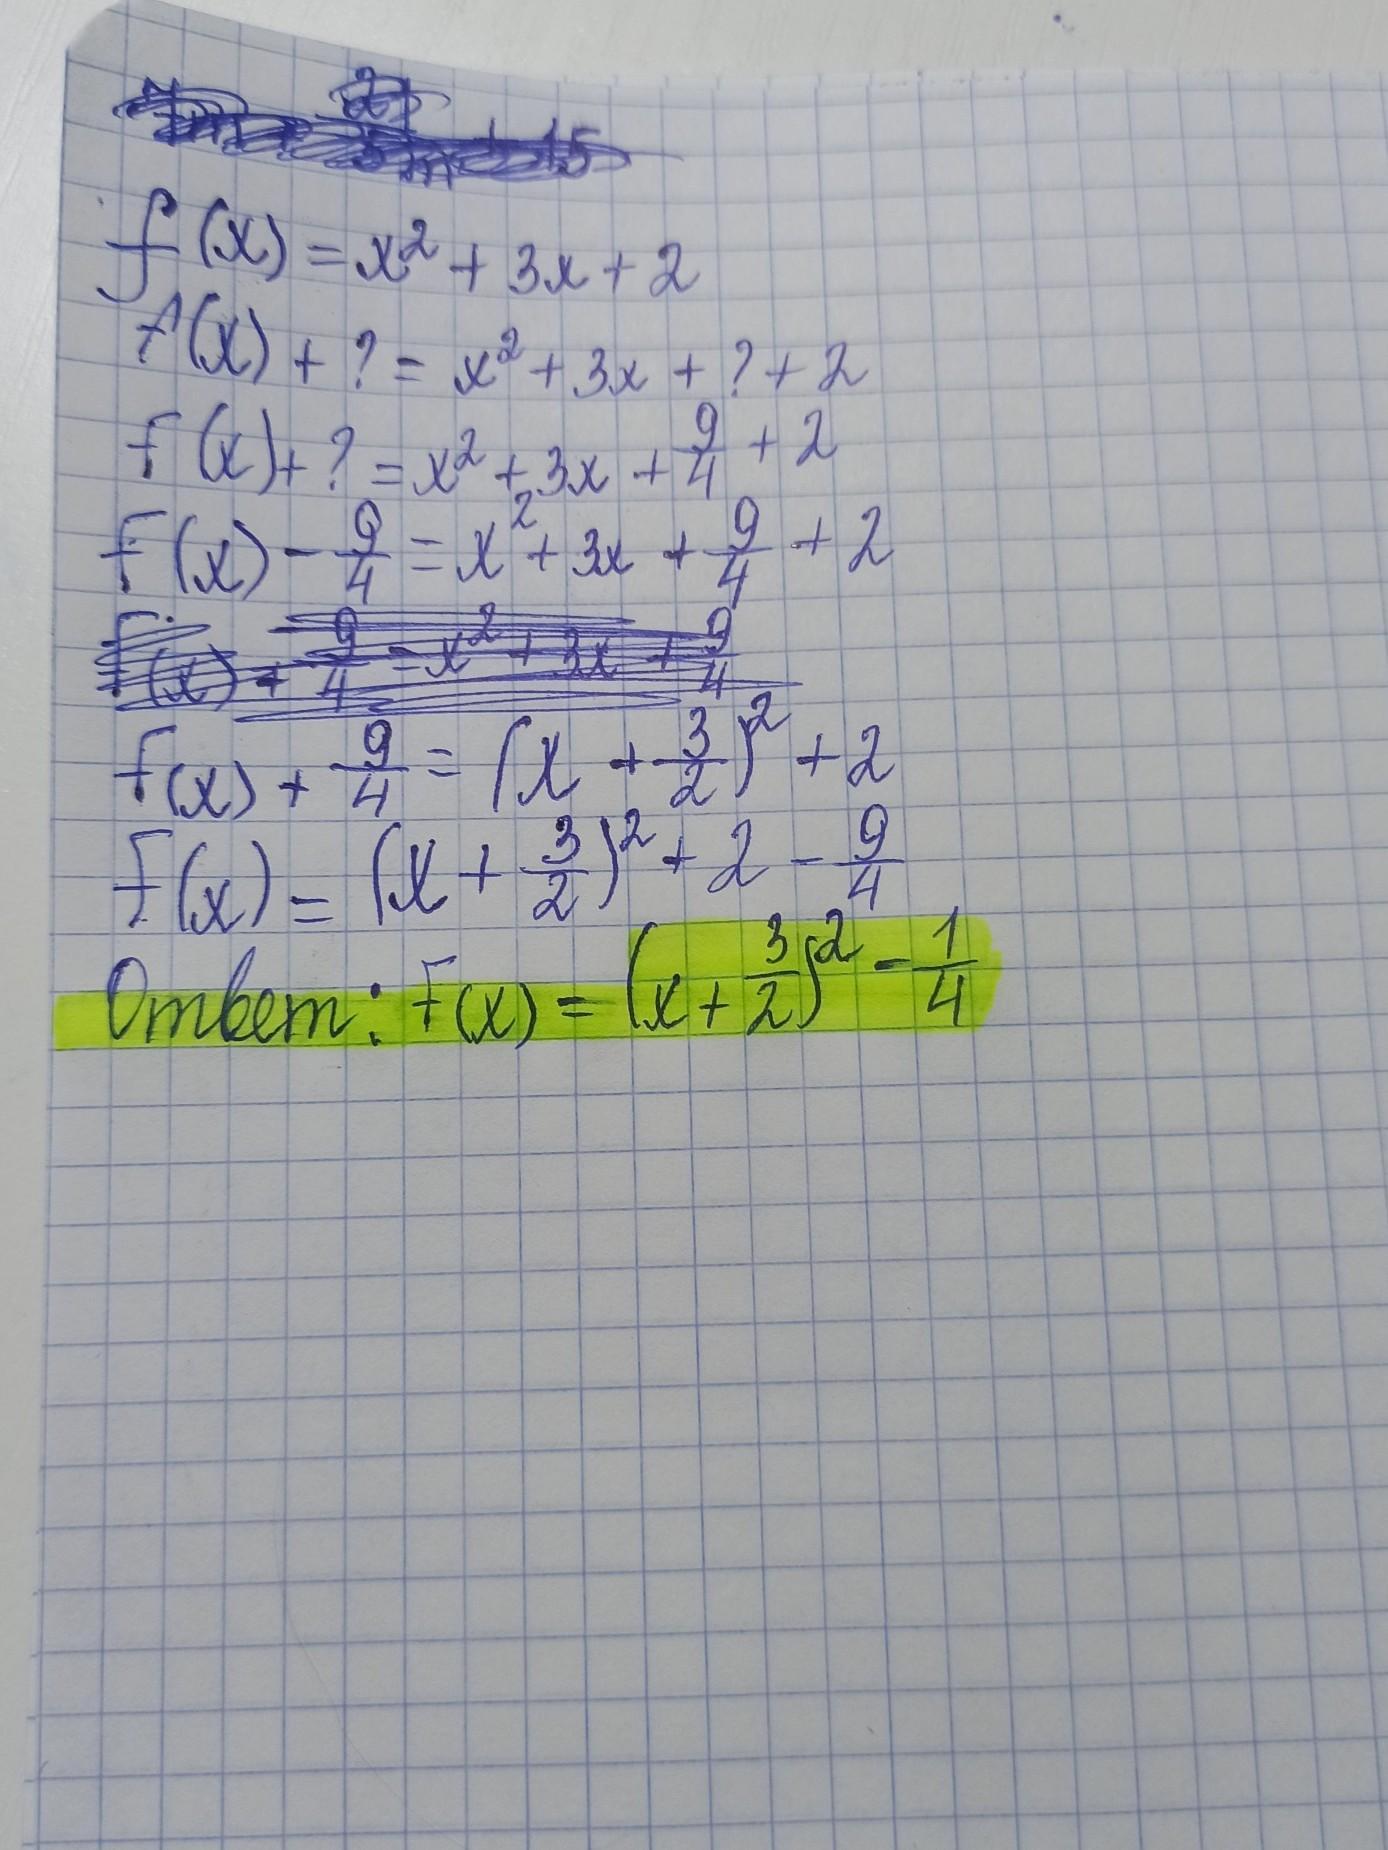 f(x) = x² + 3x + 2
f(x) + ? = x² + 3x + ? + 2
f(x) + ? = x² + 3x + 9/4 + 2
f(x) - 9/4 = x² + 3x + 9/4 + 2
f(x) + 9/4 = x² + 3x + 9/4
f(x) + 9/4 = (x + 3/2)² + 2
f(x) = (x + 3/2)² + 2 - 9/4
Ответ: f(x) = (x + 3/2)² - 1/4